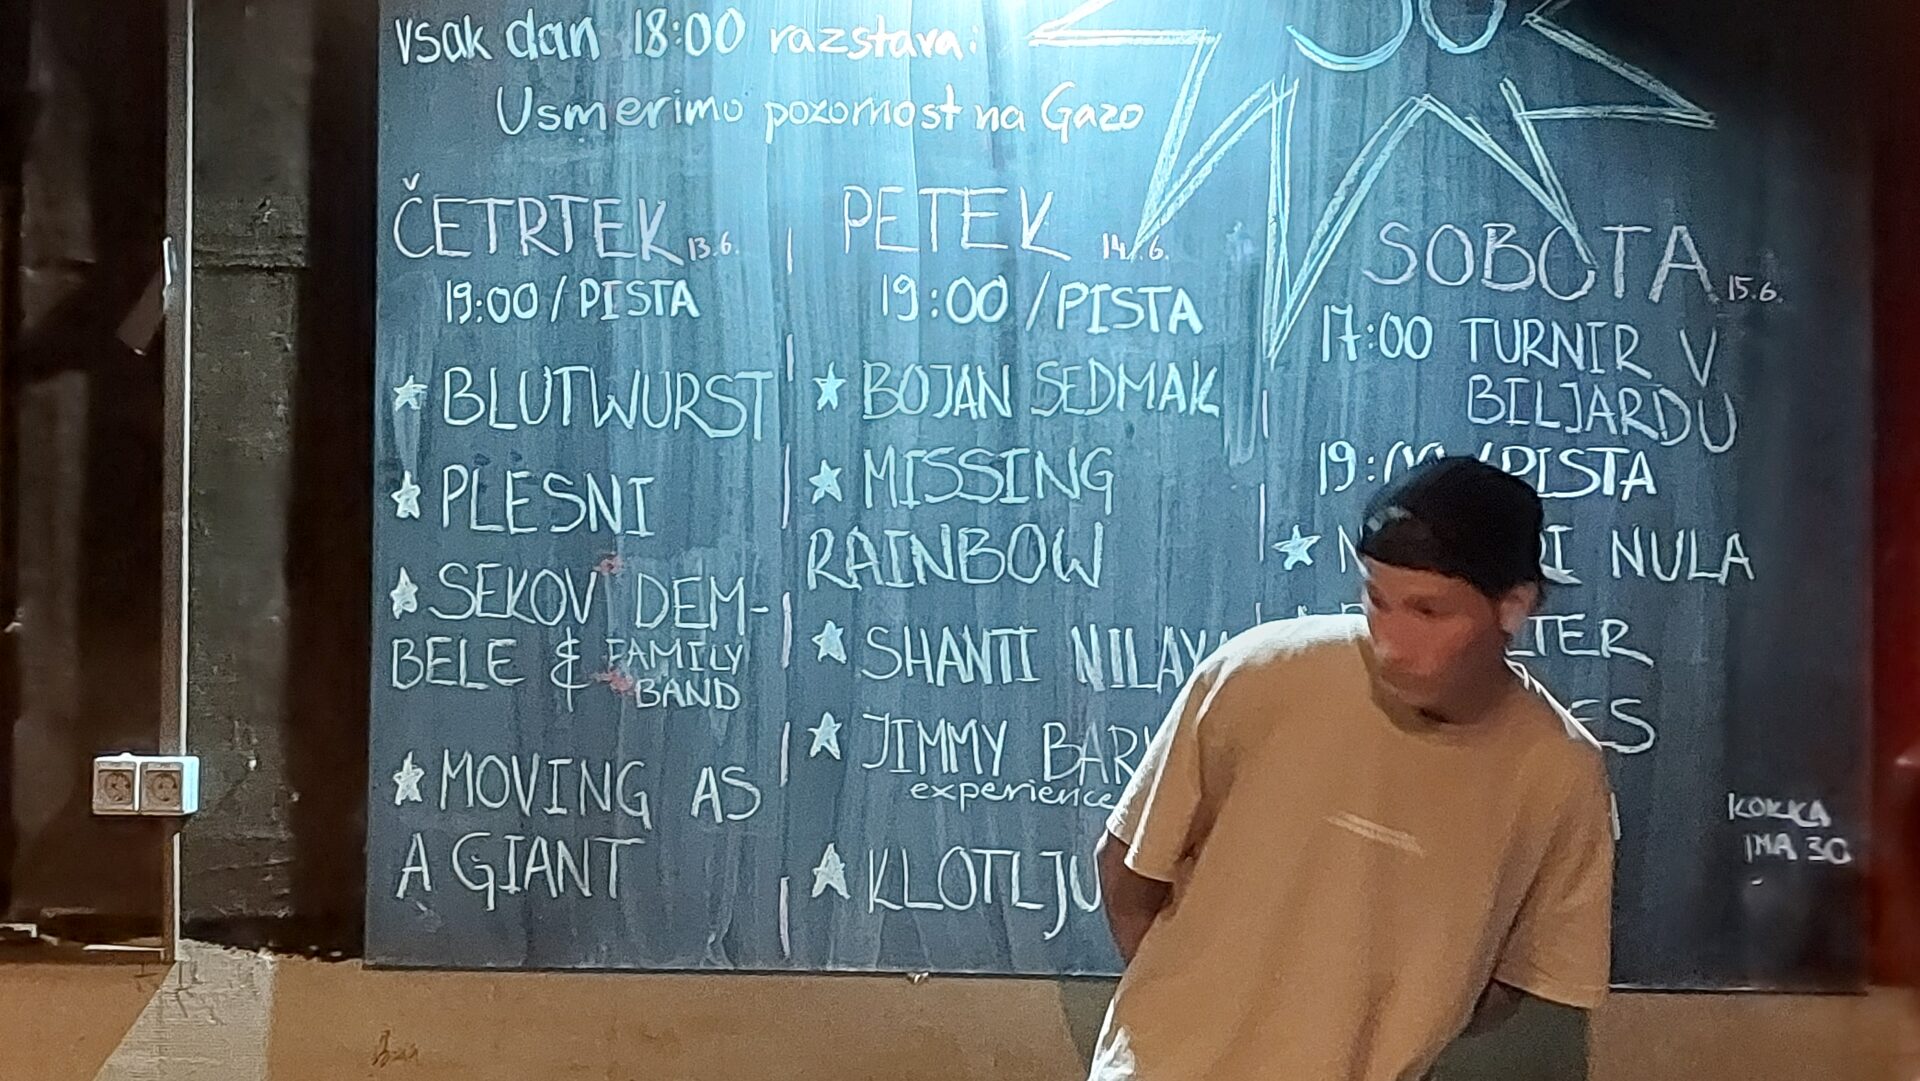 vsak dan 18:00 razstava:
Usmerimo pozornost na Gazo
ČETRTEK 13.6.
19:00 / PISTA
★ BLUTWURST
★ PLESNI
★ SEKOV DEM-
BELE & FAMILY
BAND
★ MOVING AS
A GIANT
PETEK 14.6.
19:00 / PISTA
★ BOJAN SEDMAK
★ MISSING
RAINBOW
★ SHANTI NILAY
★ JIMMY
experience
★ KLOTLJU
SOBOTA 15.6.
17:00 TURNIR V
BILJARDU
19:00 / PISTA
★ NULA
KOKKA
IMA 30